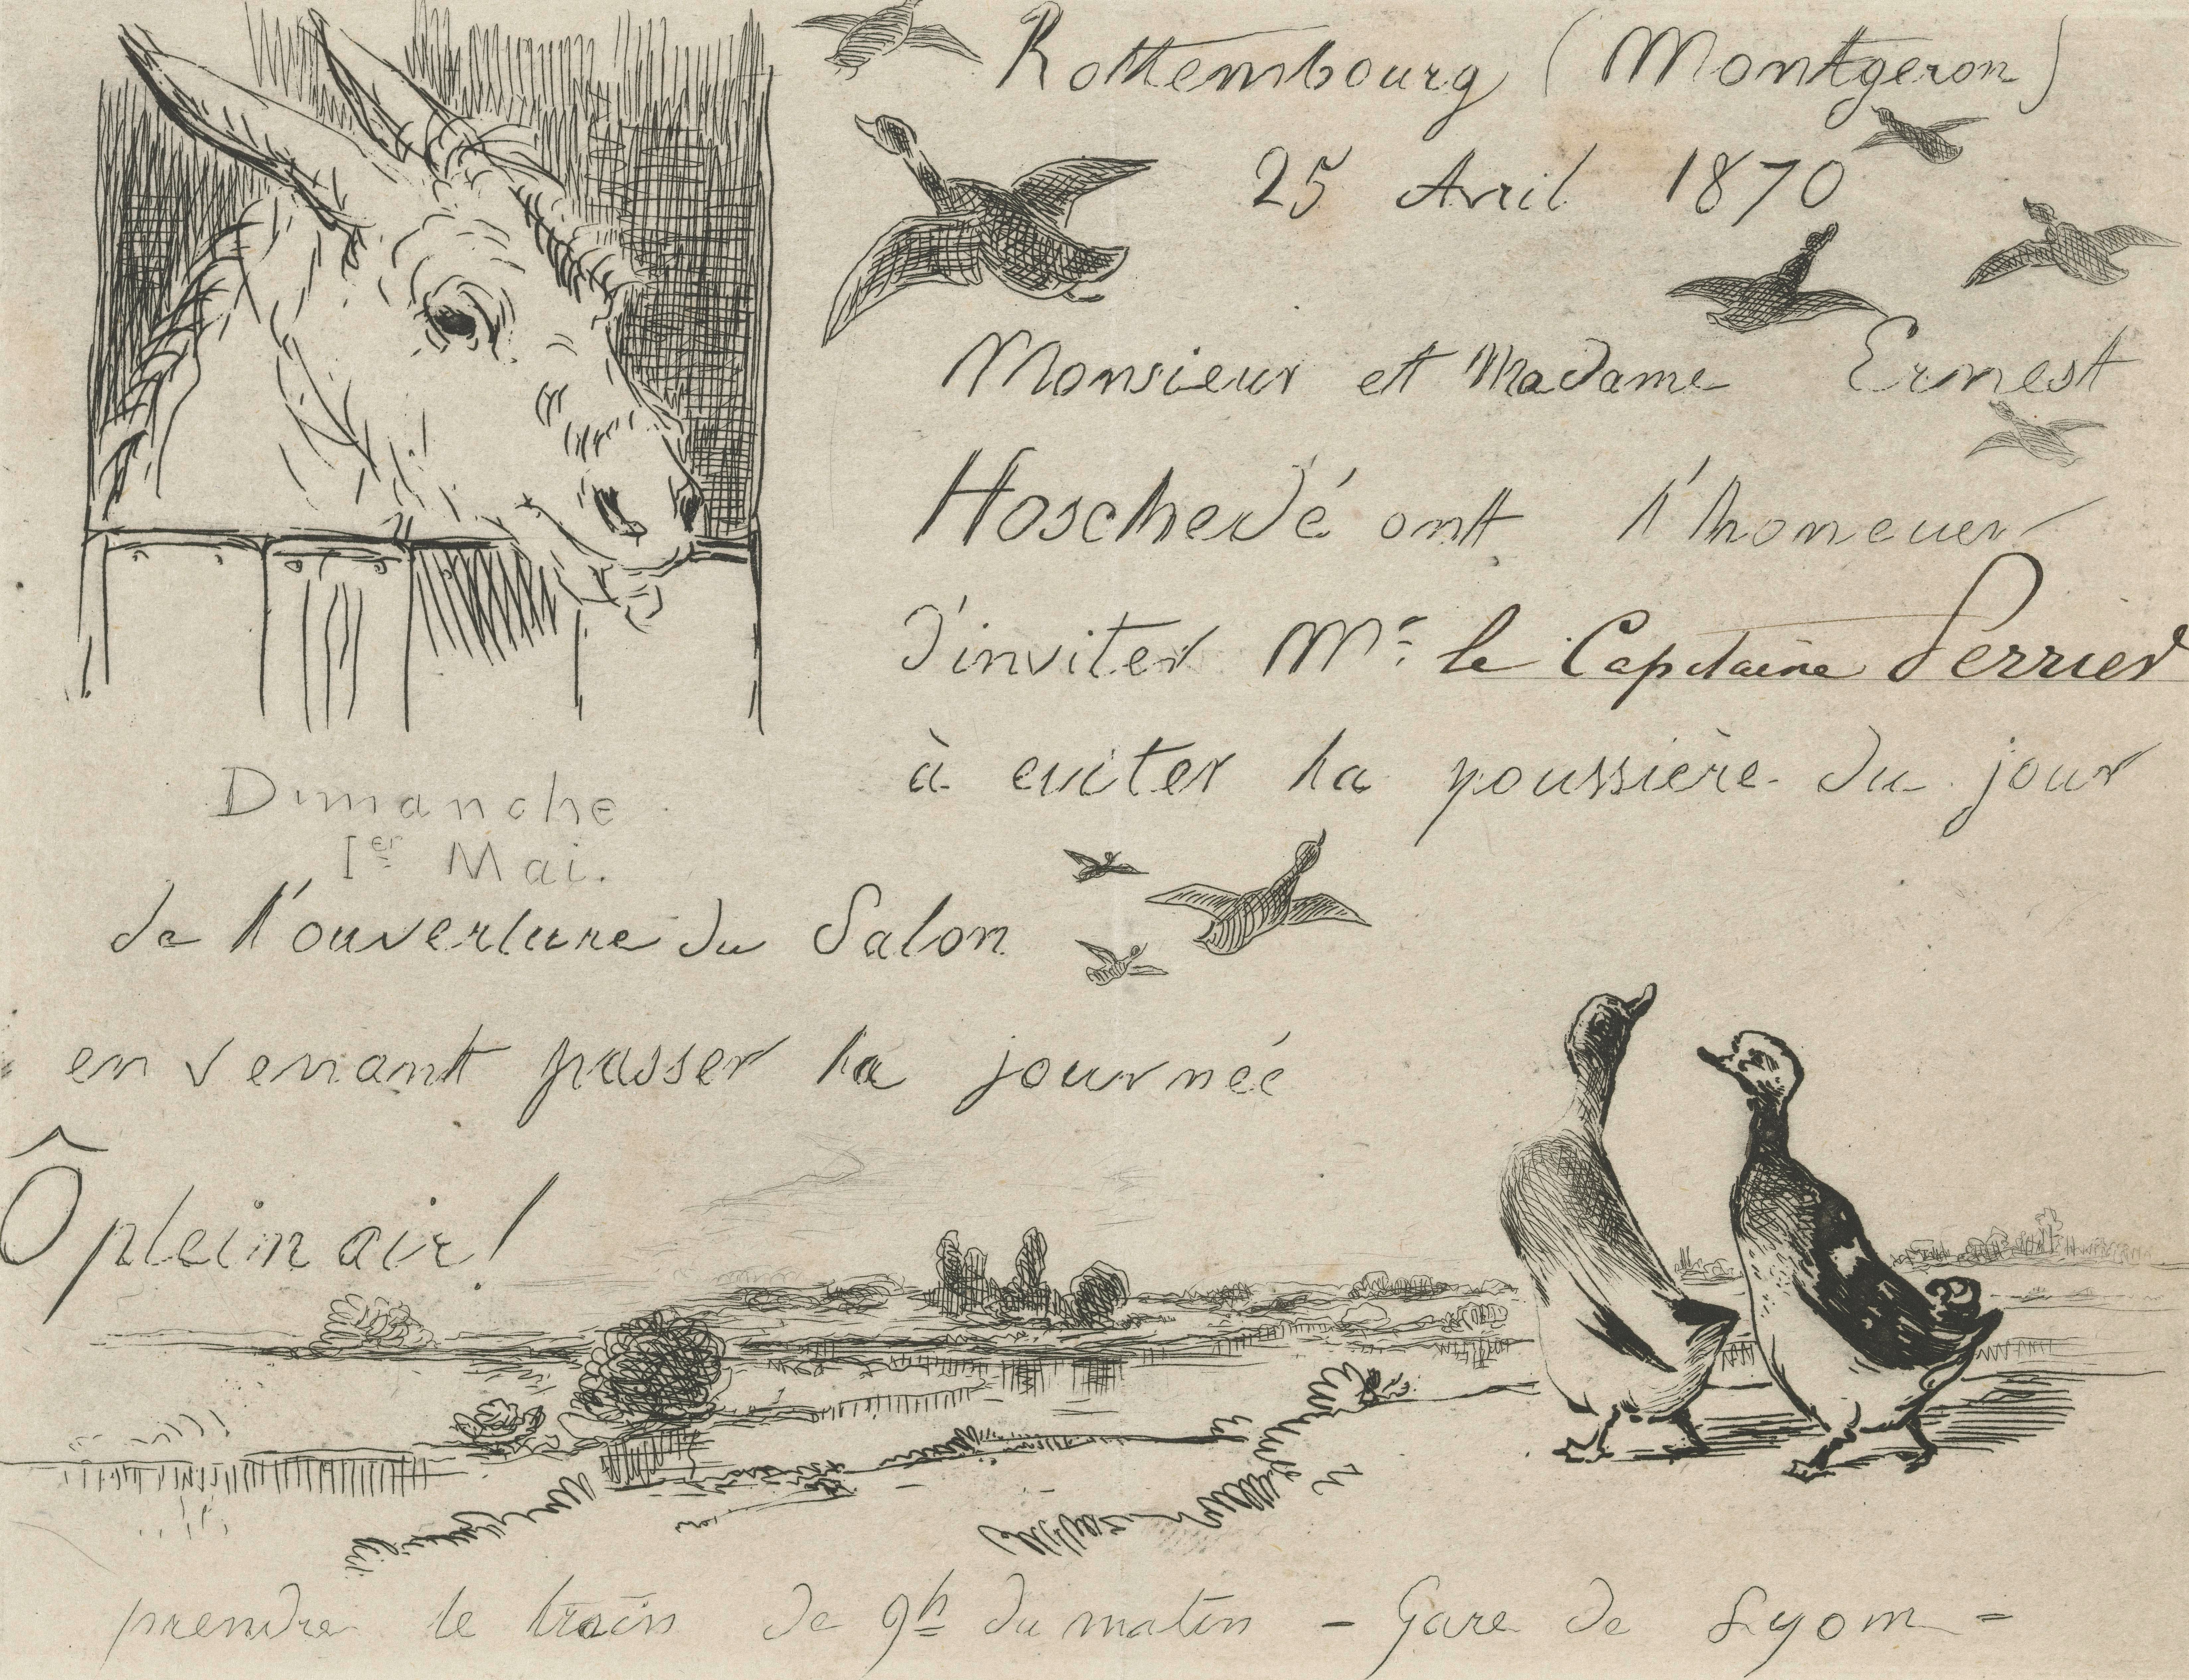 Rottembourg (Montgeron)
25 Avril 1870
Monsieur et Madame Ernest
Hoschedé ont l'honeuer
d'inviter Mr. le Capitaine Perrier
à eviter la poussière du jour
Dimanche
1er Mai.
de l'ouverture du Salon
en venant passer la journée
Ô plein air!
prendre le train de 9h du matin - Gare de Lyon -